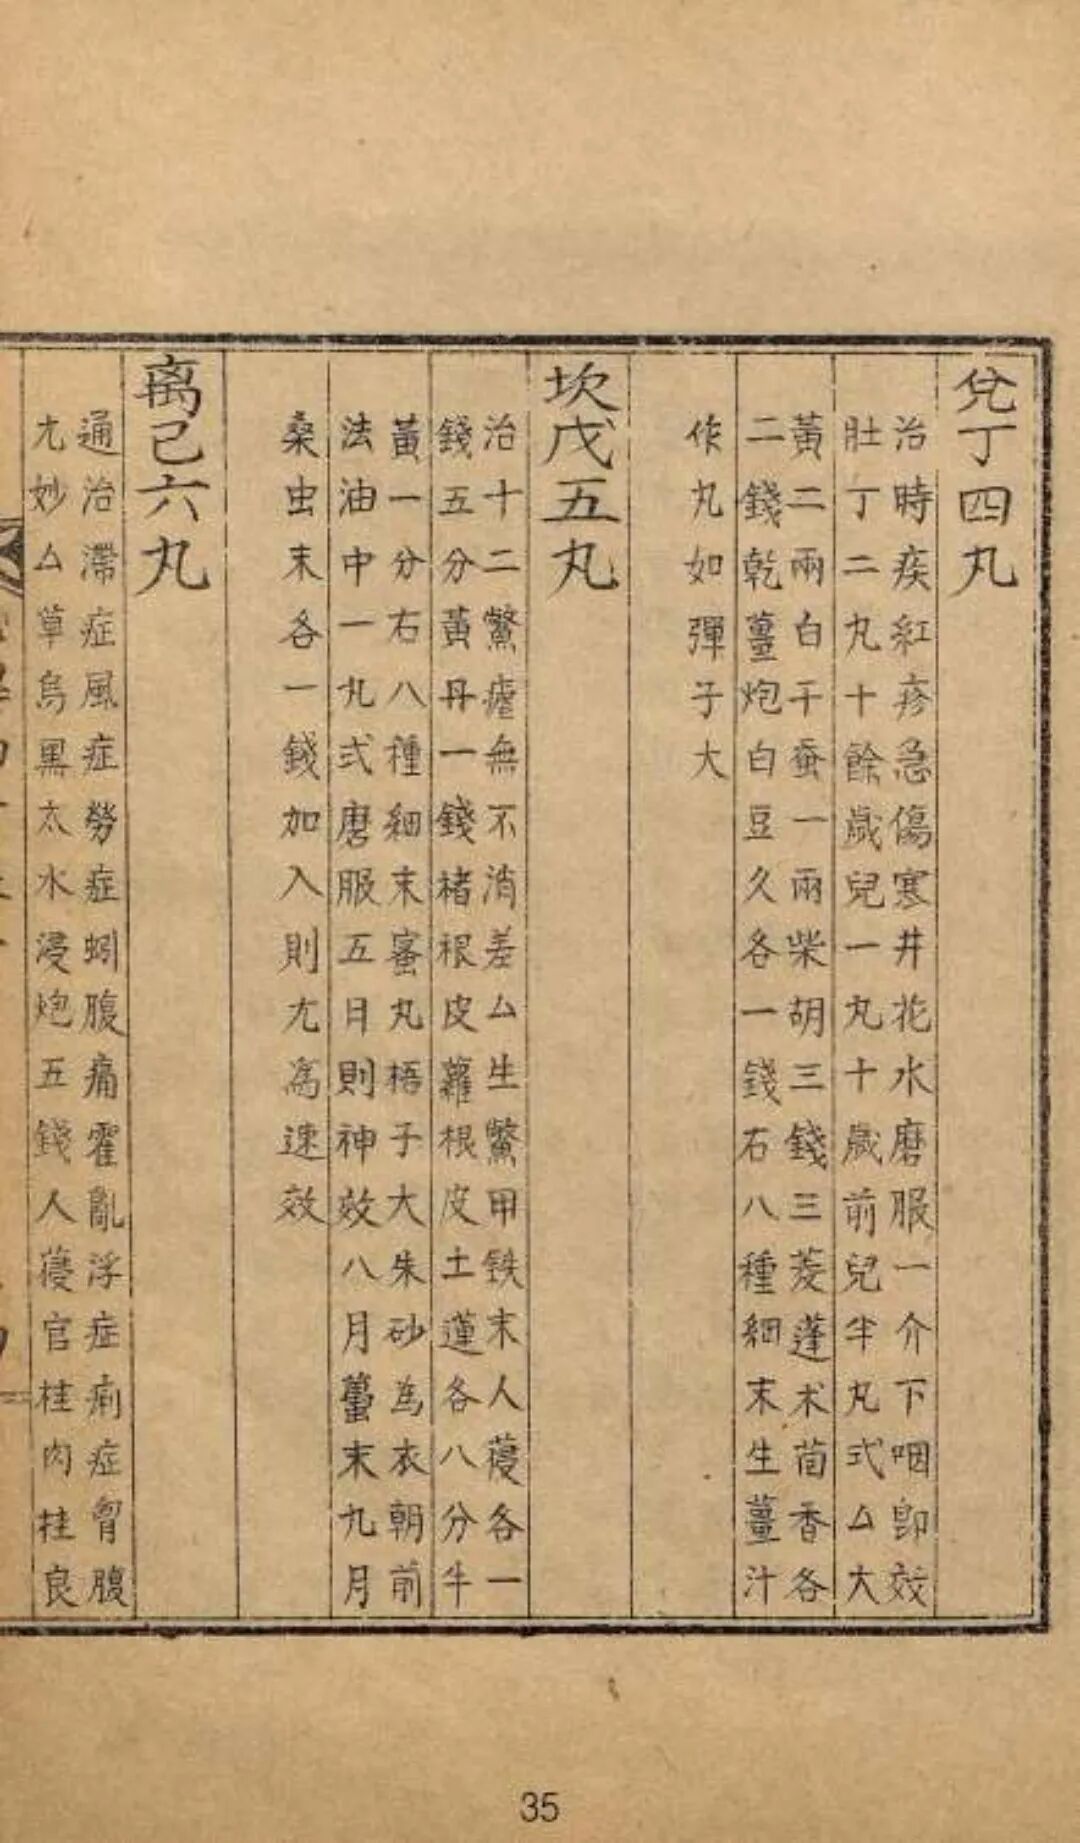 兊丁四丸
治時疾紅疹急傷寒井花水磨服一介下咽即效
肚丁二丸十餘歲兒一丸十歲前兒半丸式厶大
黃二兩白干蚕一兩柴胡三錢三菱蓬术茴香各
二錢乾薑炮白豆久各一錢石八種細末生薑汁
作丸如彈子大
坎戊五丸
治十二鱉瘧無不消差厶生鱉甲铁末人蓡各一
錢五分黃丹一錢楮根皮蘿根皮土蓮各八分牛
黃一分右八種細末蜜丸梧子大朱砂為衣朝前
法油中一丸式磨服五日則神效八月䘍末九月
桑虫末各一錢加入則尤為速效
离己六丸
通治滯症風症勞症蚓腹痛霍亂浮症痢症胷腹
尤妙厶草烏黑太水浸炮五錢人蓡官桂肉桂良
35